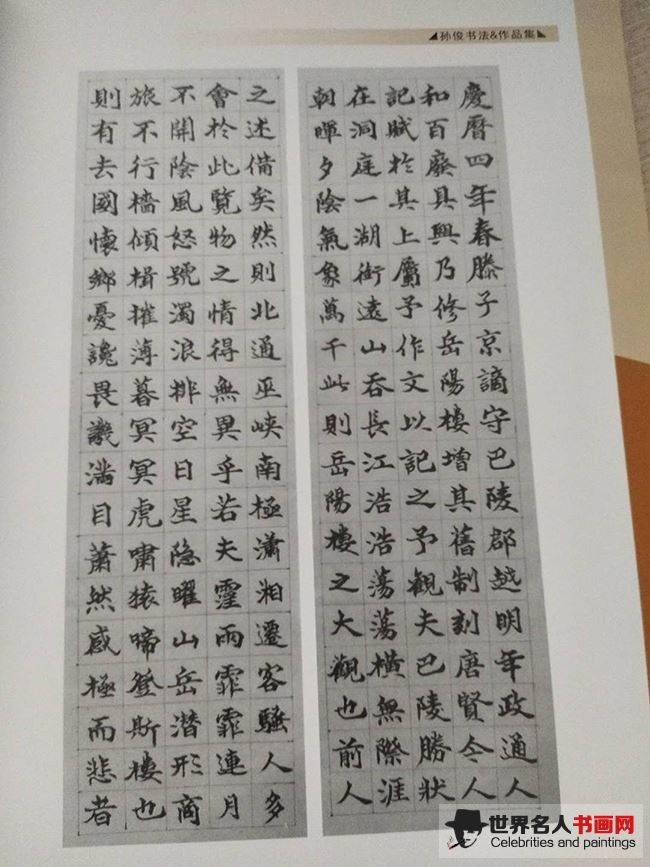 孙俊书法&作品集
慶曆四年春滕子京謫守巴陵郡越明年政通人
和百廢具興乃修岳陽樓增其舊制刻唐賢今人
記賦於其上屬予作文以記之予觀夫巴陵勝狀
在洞庭一湖銜遠山吞長江浩浩蕩蕩橫無際涯
朝暉夕陰氣象萬千此則岳陽樓之大觀也前人
之述備矣然則北通巫峽南極瀟湘遷客騷人多
會於此覽物之情得無異乎若夫霪雨霏霏連月
不開陰風怒號濁浪排空日星隐曜山岳潛形商
旅不行檣傾楫摧薄暮冥冥虎嘯猿啼登斯樓也
則有去國懷鄉憂讒畏譏滿目蕭然感極而悲者
世界名人书画网
Celebrities and paintings